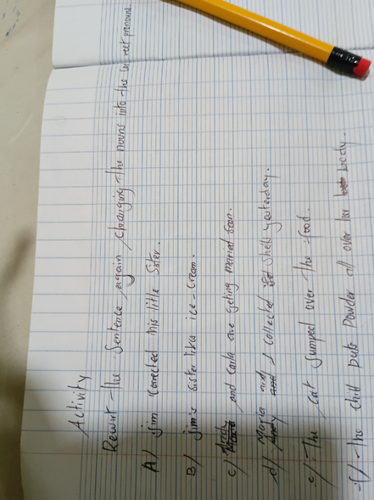 Activity
Rewrit the Sentence again changing the nouns into the correct pronoun
A/ Jim corrected his little Sister.
B/ Jim's sister like ice-cream.
c/ and Carla are geting married soon.
d/ Maria and I collected shell yesterday.
e/ The cat jumped over the food
f/ The chill puts Powder all over her body.